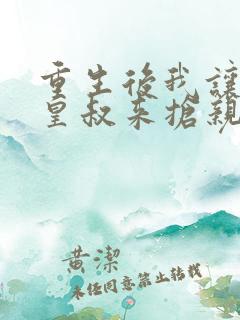 重生後我讓
皇叔來搶親
黄潔
未經同意禁止轉載